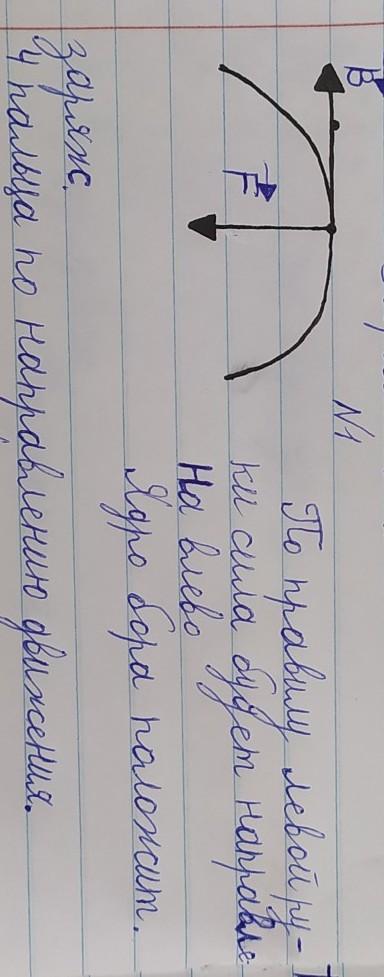 В
F
N1
По правилу левой ру-
ки сила будет направле-
на влево
Ядро бора положит.
заряж.
4 пальца по направлению движения.